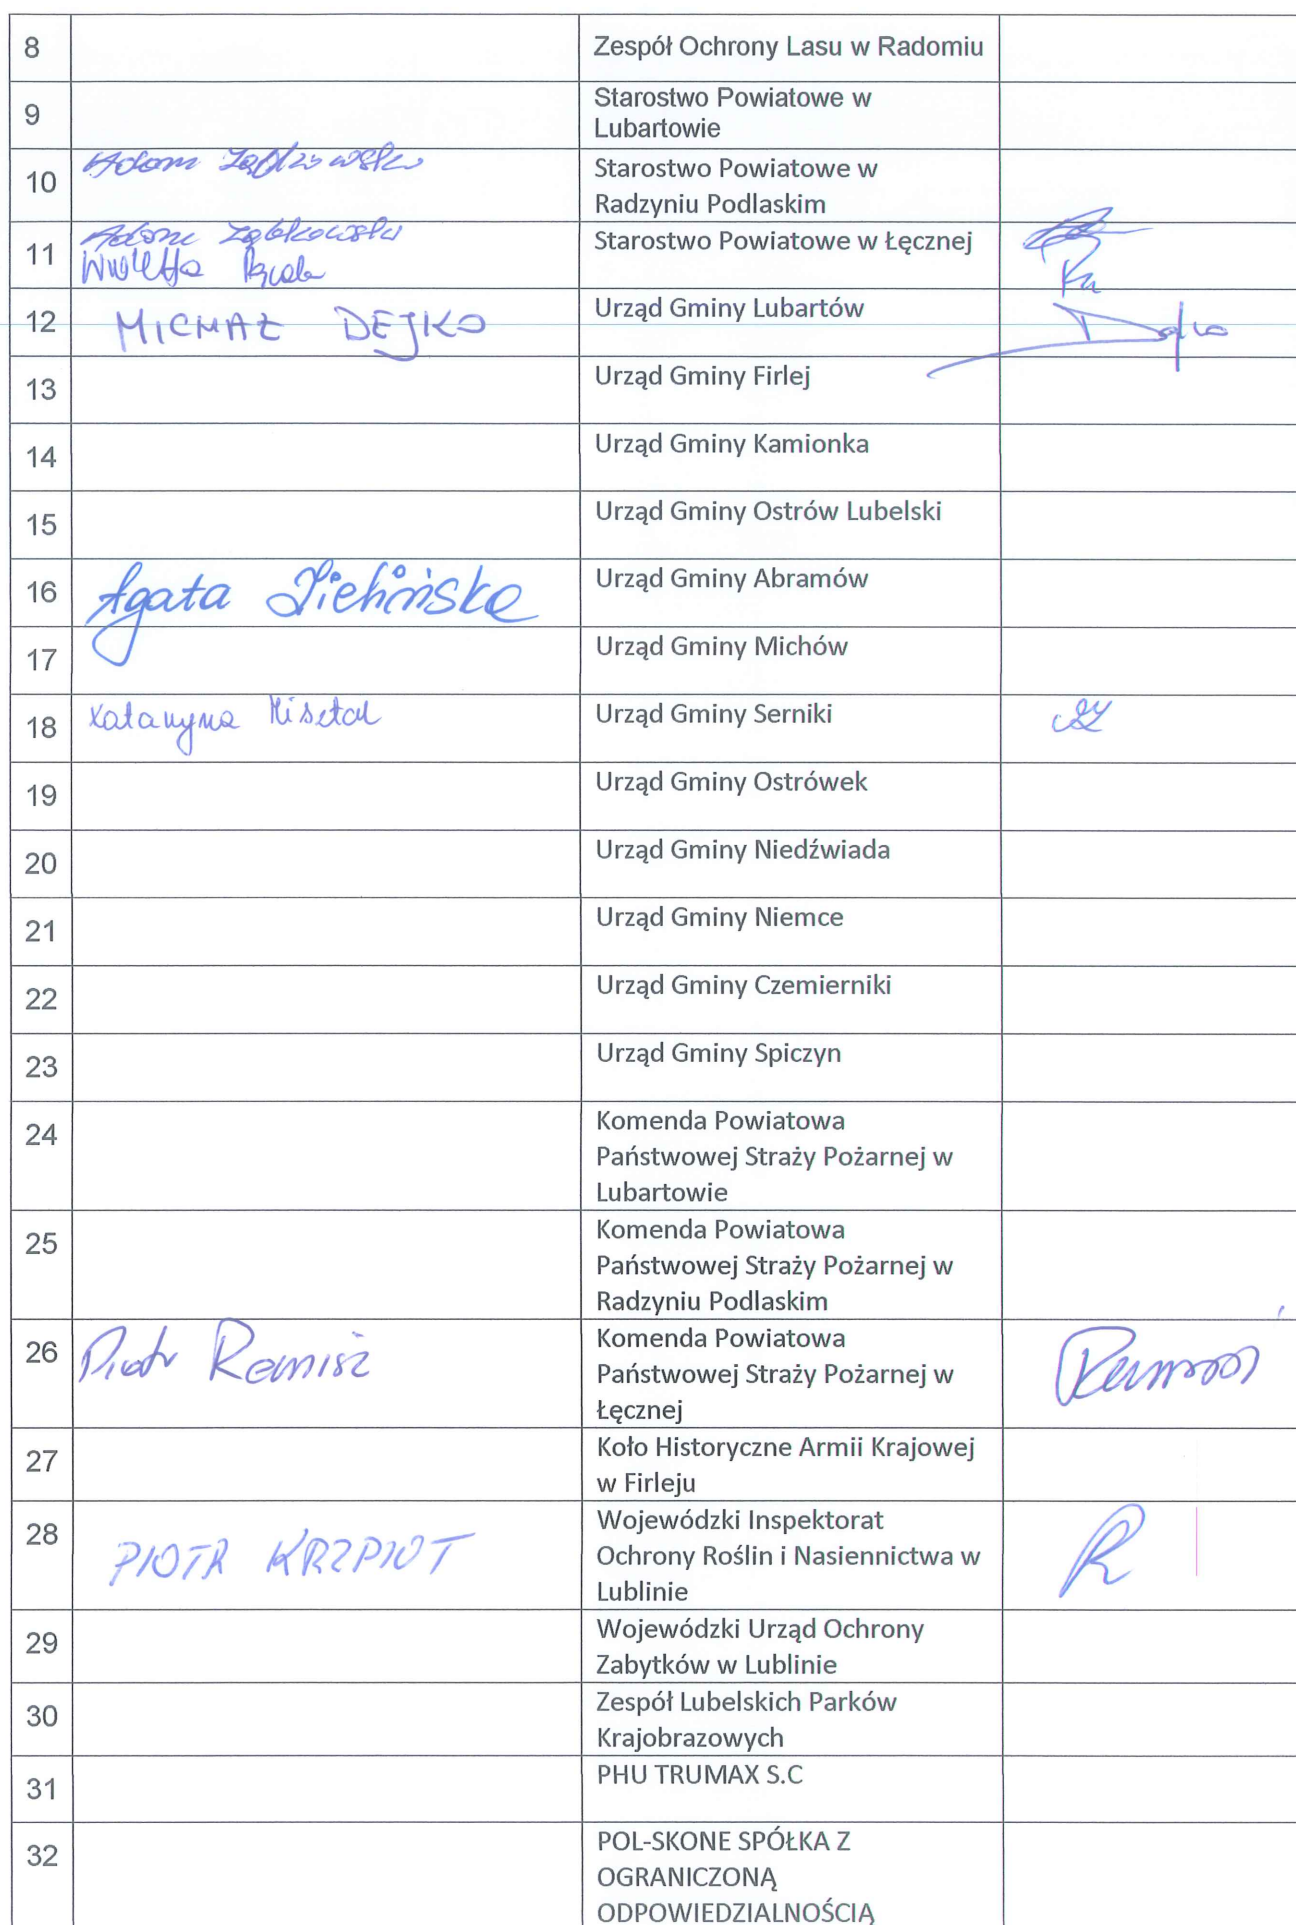 8 Zespół Ochrony Lasu w Radomiu
9 Starostwo Powiatowe w
Lubartowie
10 Adam Starostwo Powiatowe w
Radzyniu Podlaskim
11 Adam Ząbkowski Starostwo Powiatowe w Łęcznej
Wioletta
12 MICHAŁ DEJKO Urząd Gminy Lubartów Dejko
13 Urząd Gminy Firlej
14 Urząd Gminy Kamionka
15 Urząd Gminy Ostrów Lubelski
16 Agata Zielińska Urząd Gminy Abramów
17 Urząd Gminy Michów
18 Katarzyna Urząd Gminy Serniki
19 Urząd Gminy Ostrówek
20 Urząd Gminy Niedźwiada
21 Urząd Gminy Niemce
22 Urząd Gminy Czemierniki
23 Urząd Gminy Spiczyn
24 Komenda Powiatowa
Państwowej Straży Pożarnej w
Lubartowie
25 Komenda Powiatowa
Państwowej Straży Pożarnej w
Radzyniu Podlaskim
26 Piotr Remisz Komenda Powiatowa
Państwowej Straży Pożarnej w
Łęcznej
27 Koło Historyczne Armii Krajowej
w Firleju
28 PIOTR KRZPIOT Wojewódzki Inspektorat
Ochrony Roślin i Nasiennictwa w
Lublinie
29 Wojewódzki Urząd Ochrony
Zabytków w Lublinie
30 Zespół Lubelskich Parków
Krajobrazowych
31 PHU TRUMAX S.C
32 POL-SKONE SPÓŁKA Z
OGRANICZONĄ
ODPOWIEDZIALNOŚCIĄ